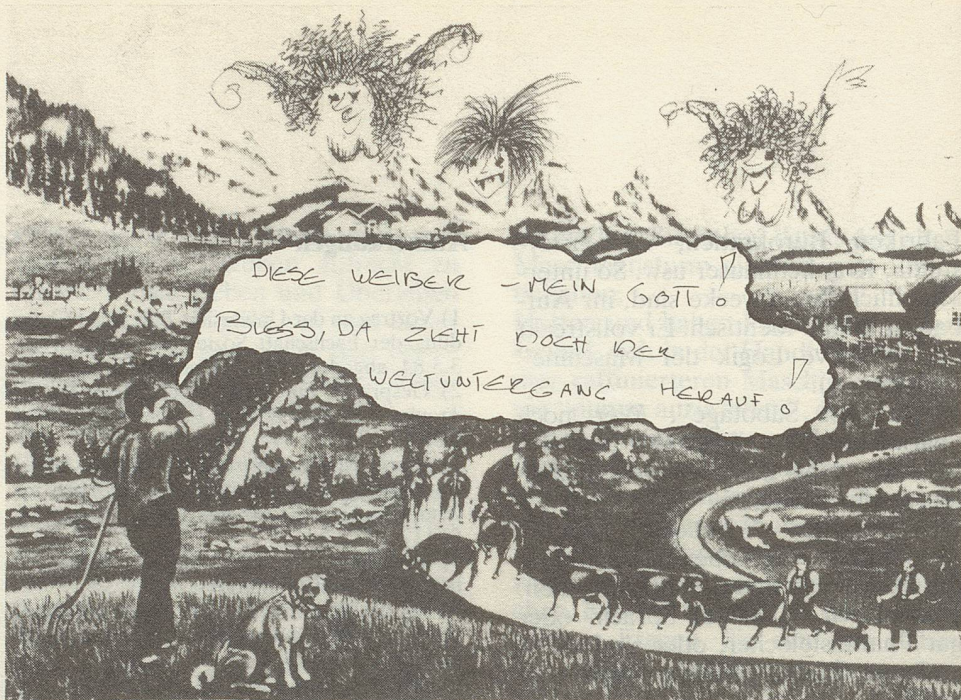 DIESE WEIBER – MEIN GOTT!
BLESS, DA ZIEHT NOCH DER
WELTUNTERGANG HERAUF!